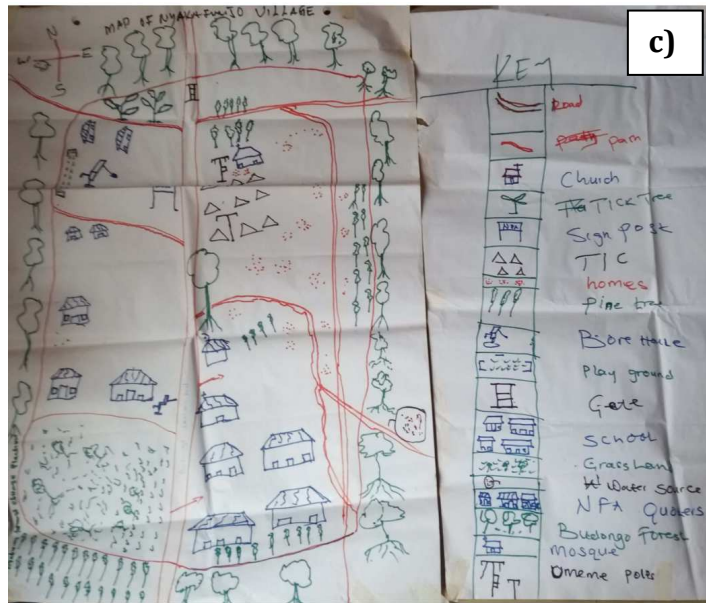 c)
MAP OF NYAKAFUNJO VILLAGE
N
W E
S
KEY
Road
path
Church
TICK Tree
Sign post
TIC
homes
Pine tree
Bore Hole
Play ground
Gate
SCHOOL
Grassland
Water source
NFA Quoters
Budongo Forest
mosque
Umeme poles